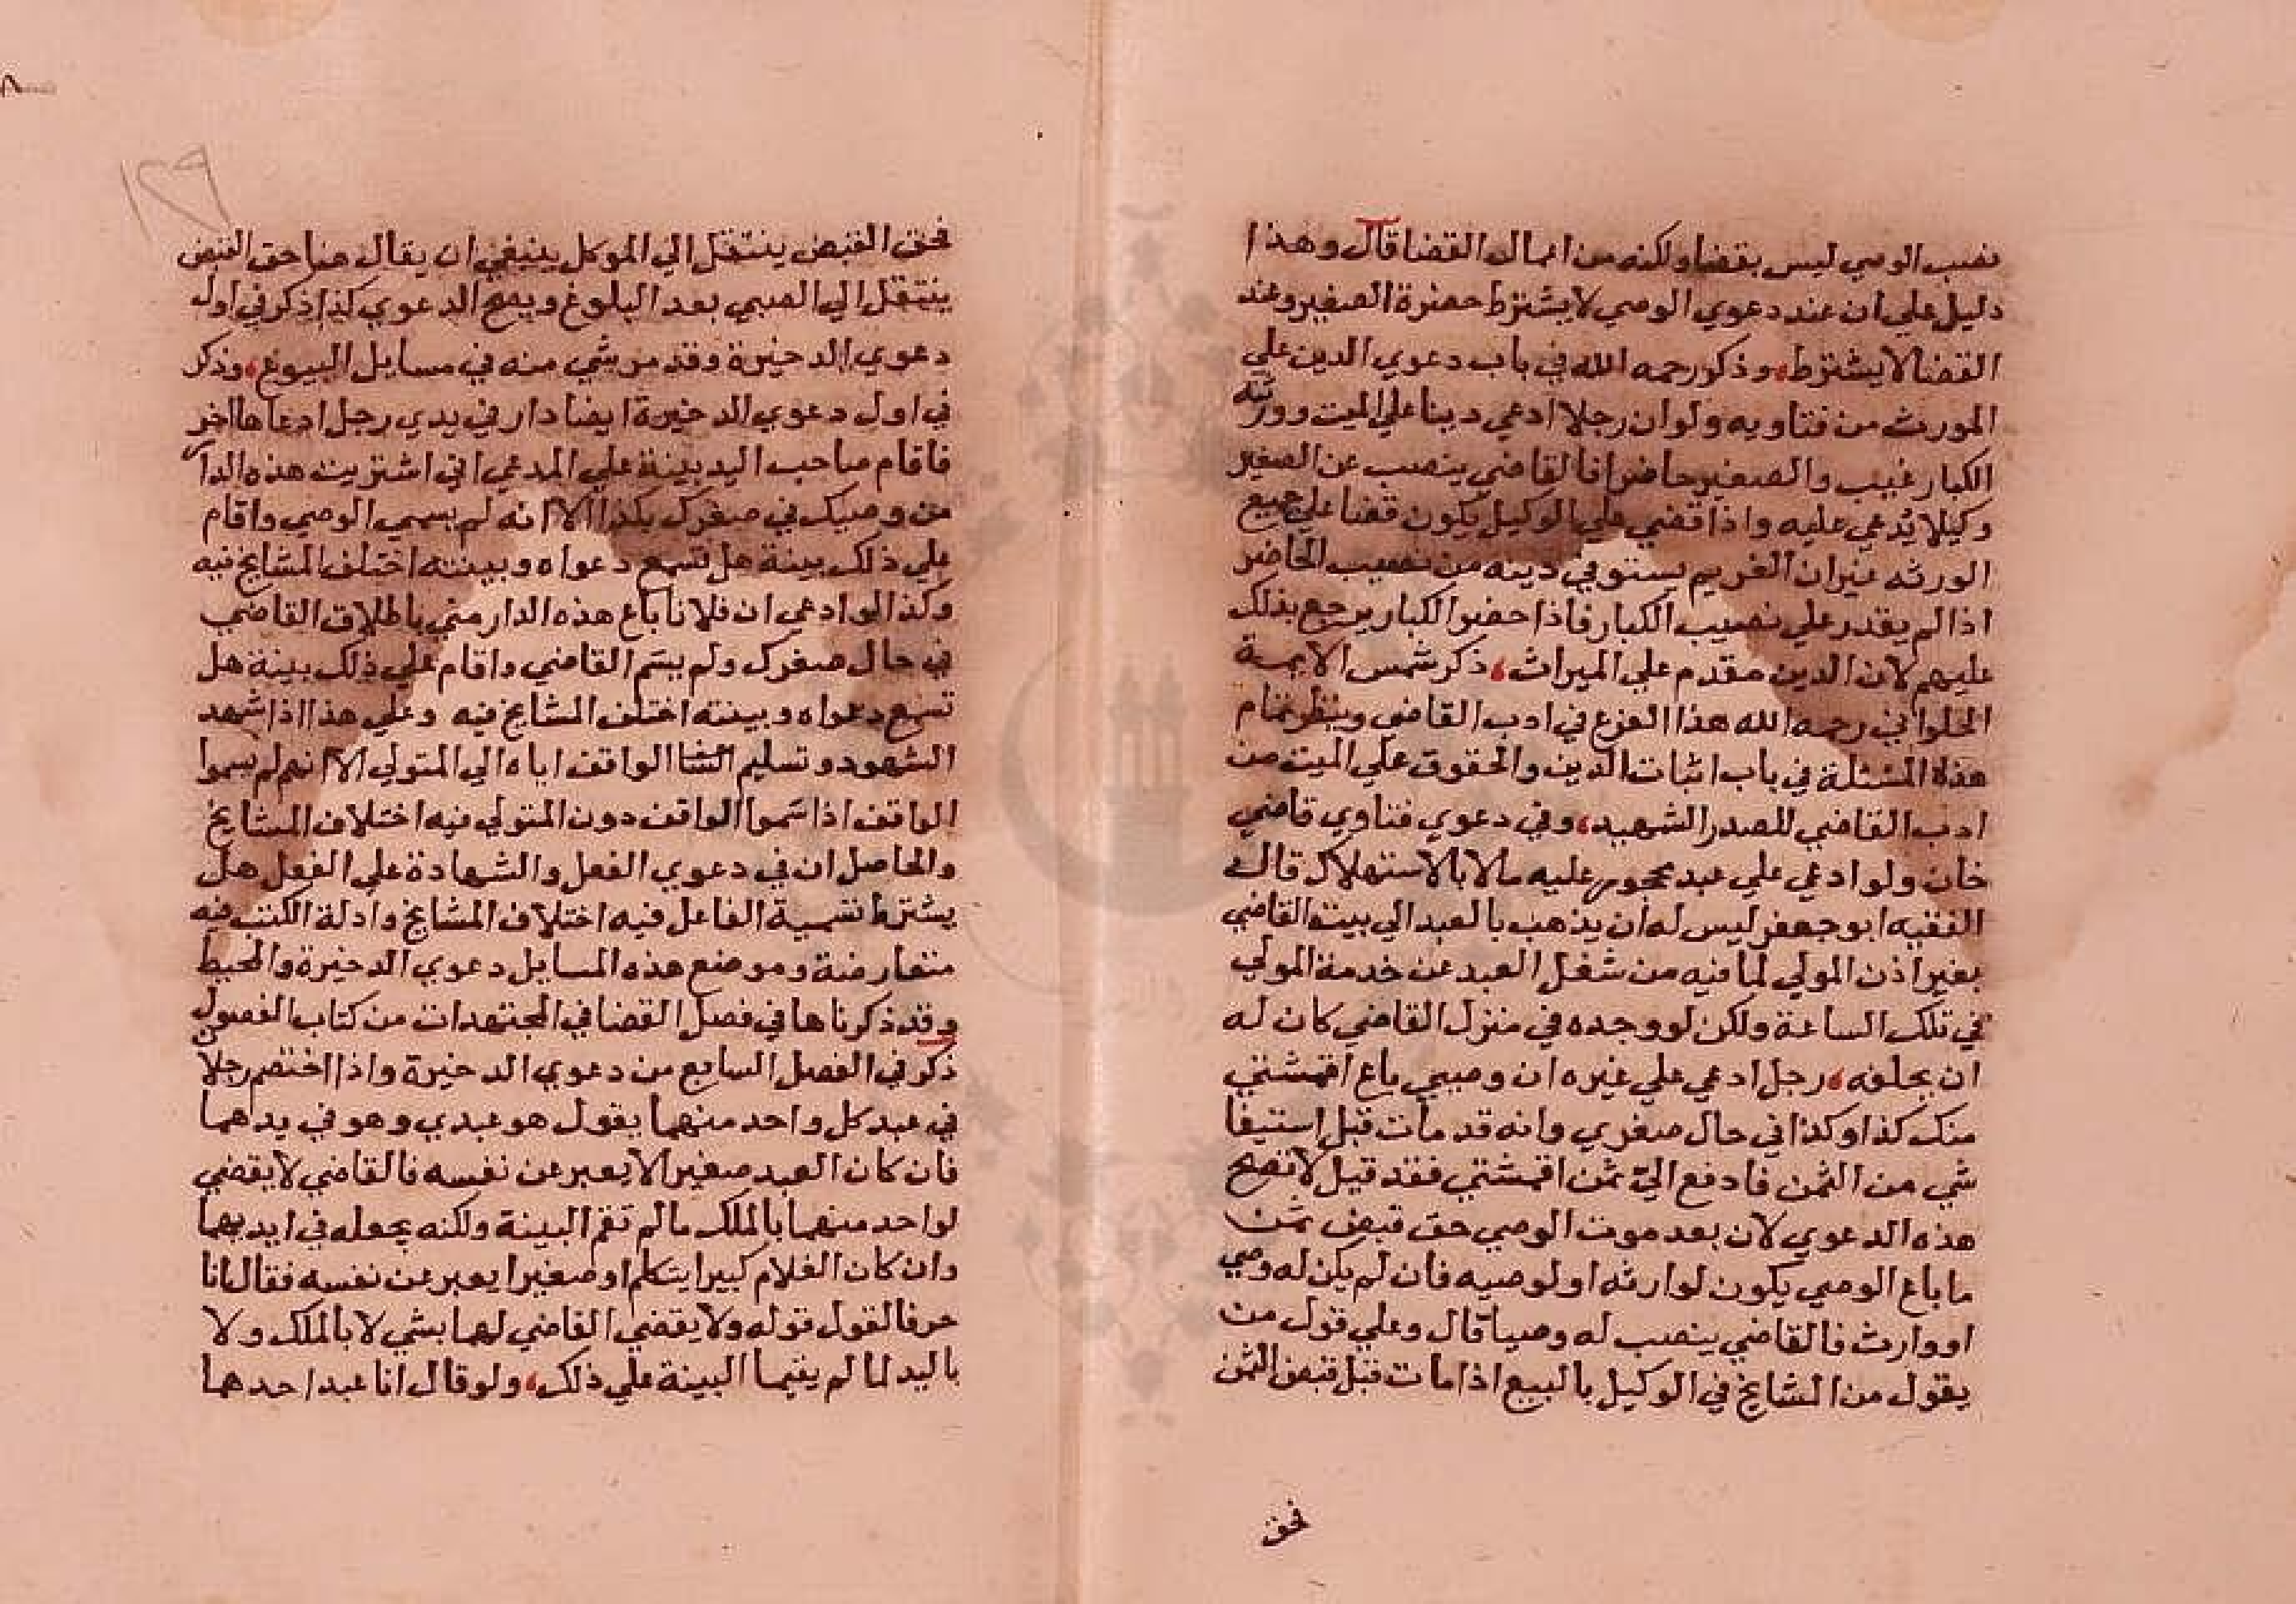 نصب الوصي ليس بقضا ولكنه من اعمال القضا قال وهذا
دليل علي ان عند دعوي الوصي لا يشترط حضرة الصغير وعند
القضا لا يشترط، وذكر رحمه الله في باب دعوي الدين علي
المورث من فتاويه ولو ان رجلا ادعي دينا علي الميت وورثته
الكبار غيب والصغير حاضرا فالقاضي ينصب عن الصغير
وكيلا يدعي عليه واذا قضي علي الوكيل يكون قضا علي جميع
الورثه غير ان الغريم يستوفي دينه من نصيب الحاضر
اذا لم يقدر علي نصيب الكبار فاذا حضروا الكبار يرجع بذلك
عليهم لان الدين مقدم علي الميراث، ذكر شمس الايمة
الحلواني رحمه الله هذا الفرع في ادب القاضي وينظر تمام
هذه المسئلة في باب اثبات الدين والحقوق علي الميت من
ادب القاضي للصدر الشهيد، وفي دعوي فتاوي قاضي
خان ولو ادعي علي عبد محجور عليه مالا بالاستهلاك قال
الفقيه ابو جعفر ليس له ان يذهب بالعبد الي بيت القاضي
بغير اذن المولي لما فيه من شغل العبد عن خدمة المولي
في تلك الساعة ولكن لو وجده في منزل القاضي كان له
ان يحلفه، رجل ادعي علي غيره ان وصيي باع اقمشتي
منك كذا وكذا في حال صغري وانه قد مات قبل استيفا
شي من الثمن فادفع اليّ ثمن اقمشتي فقد قيل لا تصح
هذه الدعوي لان بعد موت الوصي حق قبض ثمن
ما باع الوصي يكون لوارثه او لوصيه فان لم يكن له وصي
او وارث فالقاضي ينصب له وصيا قال وعلي قول من
يقول من المشايخ في الوكيل بالبيع اذا مات قبل قبض الثمن
فحق
١٢٩
فحق القبض ينتقل الي الموكل ينبغي ان يقال هنا حق القبض
ينتقل الي الصبي بعد البلوغ ويصح الدعوي كذا ذكر في اول
دعوي الدخيرة وقد مر شي منه في مسايل البيوع، وذكر
في اول دعوي الدخيرة ايضا دار في يدي رجل ادعاها اخر
فاقام صاحب اليد بينة علي المدعي اني اشتريت هذه الدار
من وصيك في صغرك بكذا الا انه لم يسمي الوصي واقام
علي ذلك بينة هل تسمع دعواه وبينته اختلف المشايخ فيه
وكذا لو ادعي ان فلانا باع هذه الدار مني باطلاق القاضي
في حال صغرك ولم يسَم القاضي واقام علي ذلك بينة هل
تسمع دعواه وبينته اختلف المشايخ فيه وعلي هذا اذا شهد
الشهود وتسليم الواقف اياه الي المتولي الا انهم لم يسموا
الواقف اذا سموا الواقف دون المتولي فيه اختلاف المشايخ
والحاصل ان في دعوي الفعل والشهادة علي الفعل هل
يشترط تسمية الفاعل فيه اختلاف المشايخ وادلة الكتب فيه
متعارضة وموضع هذه المسايل دعوي الدخيرة والمحيط
وقد ذكرناها في فصل القضا في المجتهدات من كتاب الفصول
ذكر في الفصل السابع من دعوي الدخيرة واذا اختصم رجلان
في عبد كل واحد منهما يقول هو عبدي وهو في يدهما
فان كان العبد صغيرا لا يعبر عن نفسه فالقاضي لا يقضي
لواحد منهما بالملك ما لم تقم البينة ولكنه يجعله في ايديهما
وان كان الغلام كبيرا يتكلم او صغيرا يعبر عن نفسه فقال انا
حر فالقول قوله ولا يقضي القاضي لهما بشي لا بالملك ولا
باليد لما لم يقيما البينة علي ذلك، ولو قال انا عبد احدهما